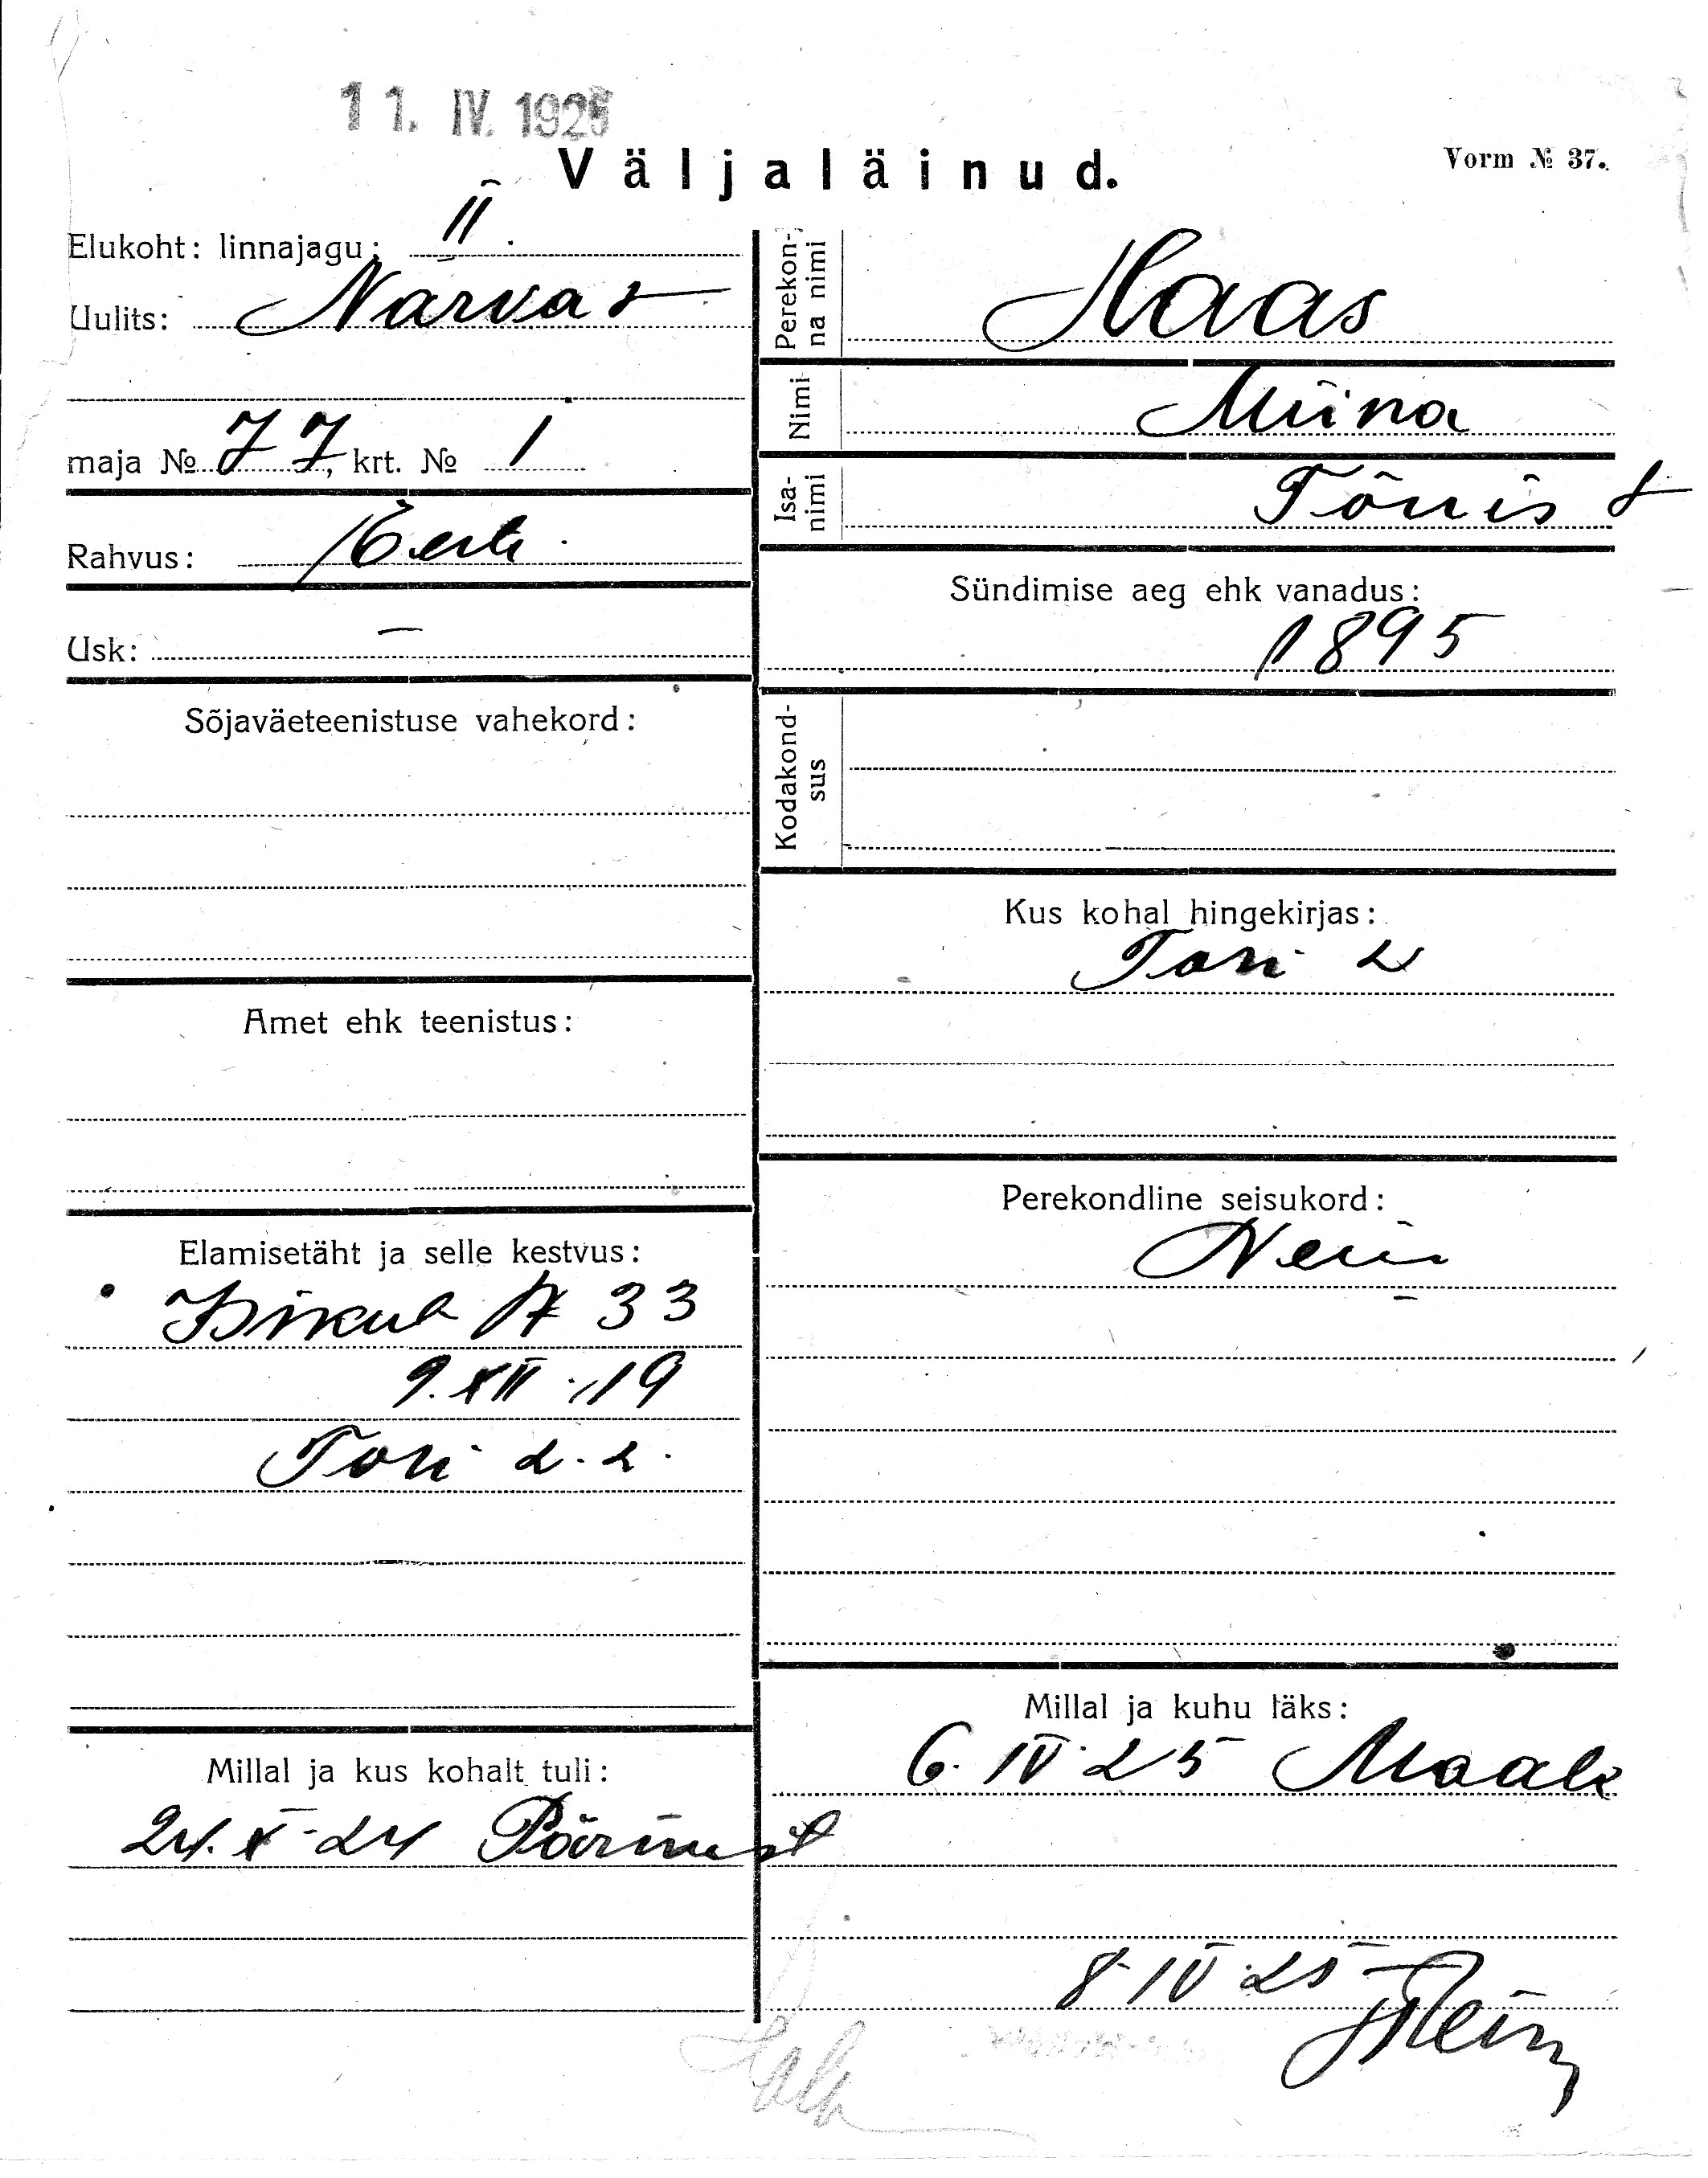 11. IV. 1925
Väljaläinud.
Vorm № 37.
Elukoht: linnajagu: II.
Uulits: Narva t
maja № 77, krt. № 1
Rahvus: Eesti
Usk: —
Sõjaväeteenistuse vahekord:
Amet ehk teenistus:
Elamisetäht ja selle kestvus:
Isikut № 33
9. XII 19
Tori v. v.
Millal ja kus kohalt tuli:
24. X 24 Pärnust
Perekonna nimi Haas
Nimi Miina
Isanimi Tõnis t
Sündimise aeg ehk vanadus:
1895
Kodakondsus
Kus kohal hingekirjas:
Tori v
Perekondline seisukord:
Neiu
Millal ja kuhu läks:
6. IV 25 Maale
8 IV 25